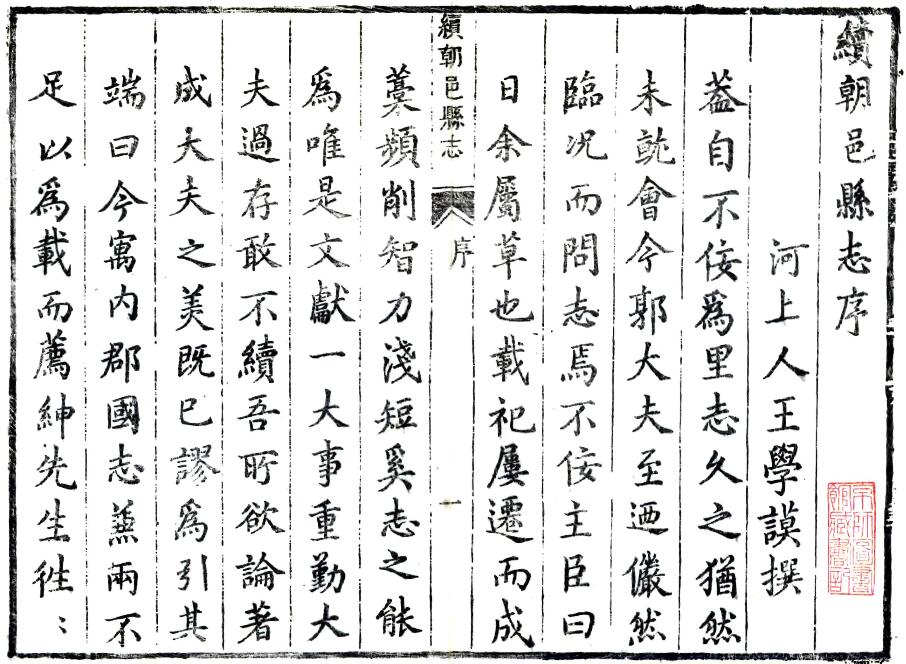 續朝邑縣志序
河上人王學謨撰
葢自不佞爲里志久之猶然
未就會今郭大夫至迺儼然
臨况而問志焉不佞主臣曰
日余屬草也載祀屢遷而成
續朝邑縣志
序
一
藁頻削智力淺短奚志之能
爲唯是文獻一大事重勤大
夫過存敢不續吾所欲論著
成大夫之美既已謬爲引其
端曰今寓内郡國志蒸兩不
足以爲載而薦紳先生徃〻